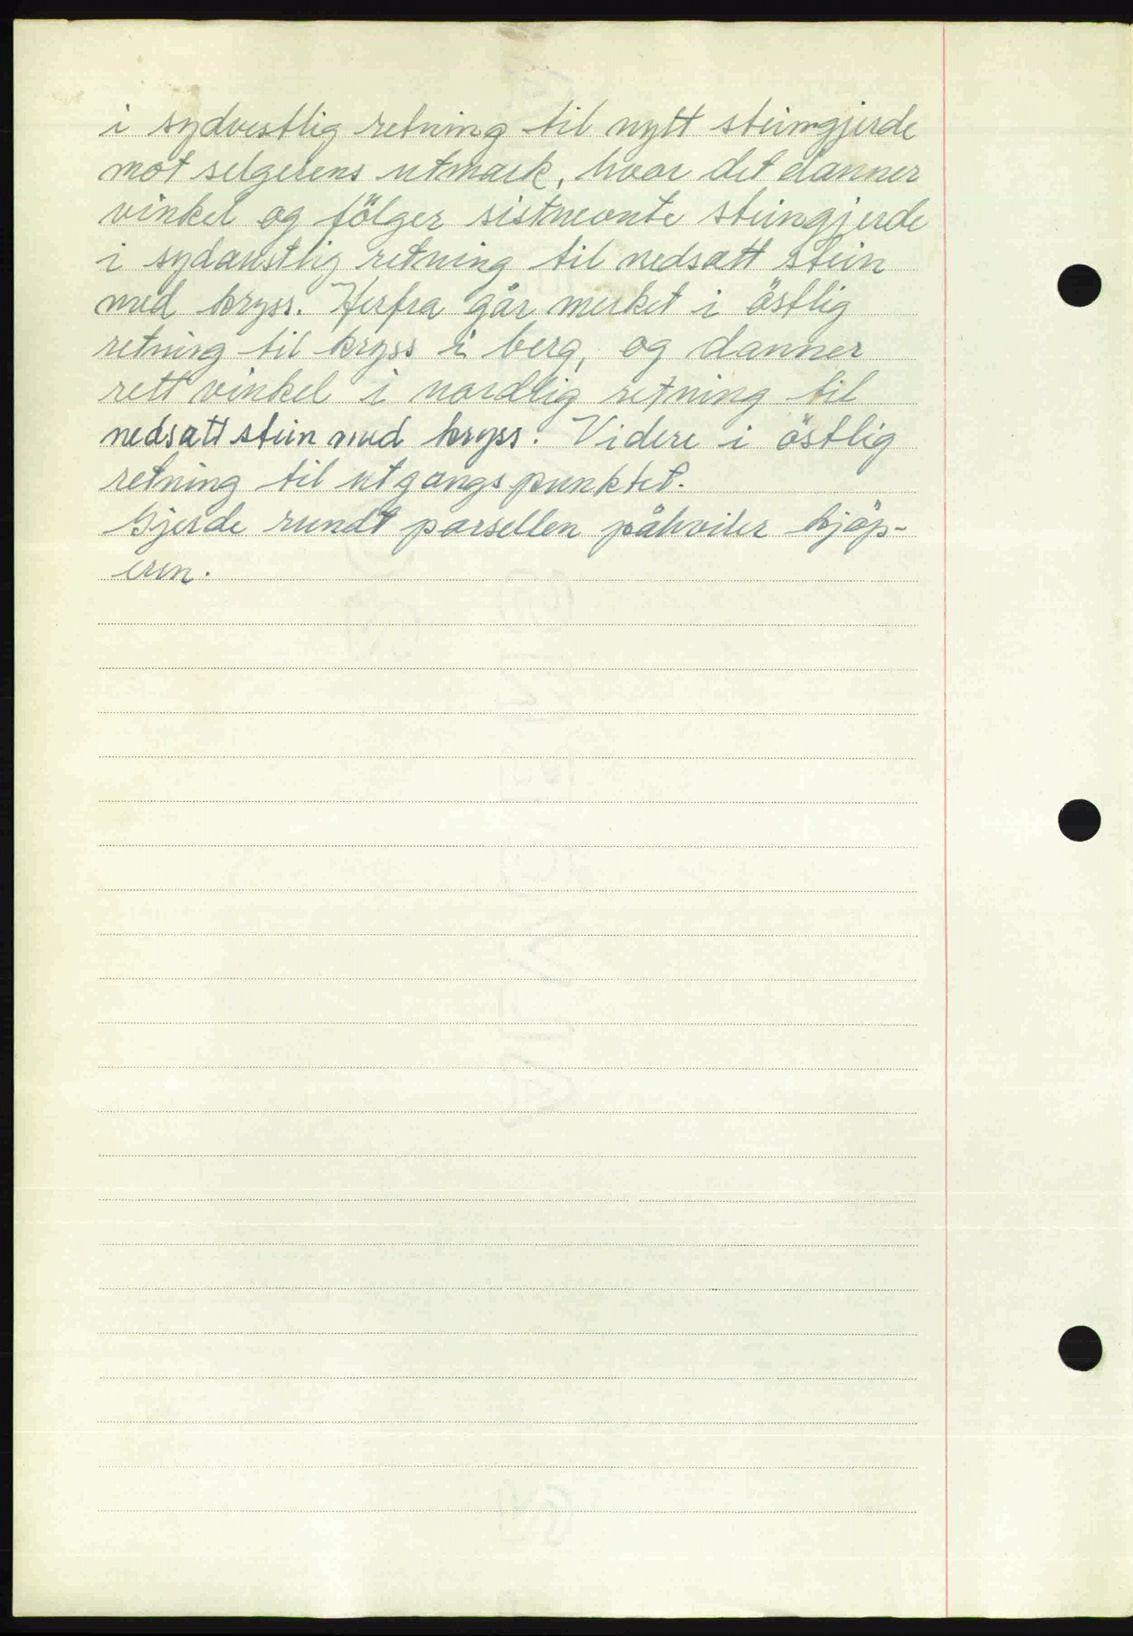 i sydvestlig retning til nytt steingjerde
mot selgerens utmark, hvor det danner
vinkel og fölger sistnevnte steingjerde
i sydaustlig retning til nedsatt stein
med kryss. Herfra går merket i östlig
retning til kryss i berg, og danner
rett vinkel i nordlig retning til
nedsatt stein med kryss. Videre i östlig
retning til utgangspunktet.
Gjerde rundt parsellen påhviler kjöp-
eren.